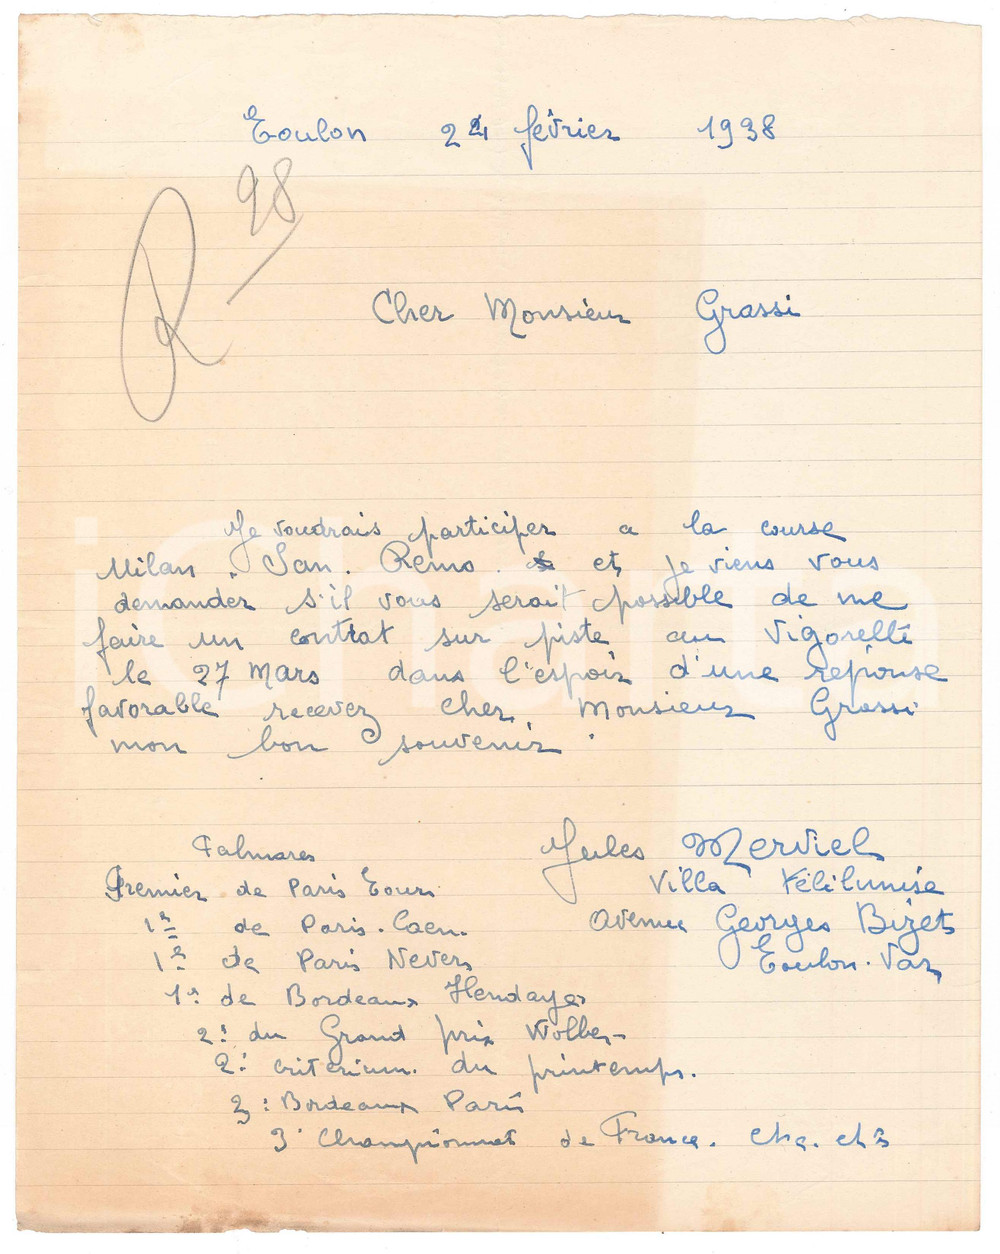 Toulon 24 février 1938
R 28
Cher Monsieur Grassi
Je voudrais participer a la course
Milan . San . Remo . et je viens vous
demander s'il vous serait possible de me
faire un contrat sur piste au Vigorelli
le 27 Mars dans l'espoir d'une reponse
favorable recevez cher Monsieur Grassi
mon bon souvenir .
Palmares
Premier de Paris Tours
1er de Paris . Caen .
1er de Paris Nevers
1er de Bordeaux Hendaye
2: du Grand prix Wolber
2: criterium du printemps.
3: Bordeaux Paris
3 Championnat de France.
Jules Merviel
Villa
Avenue Georges Bizet
Toulon . Var
iCharta